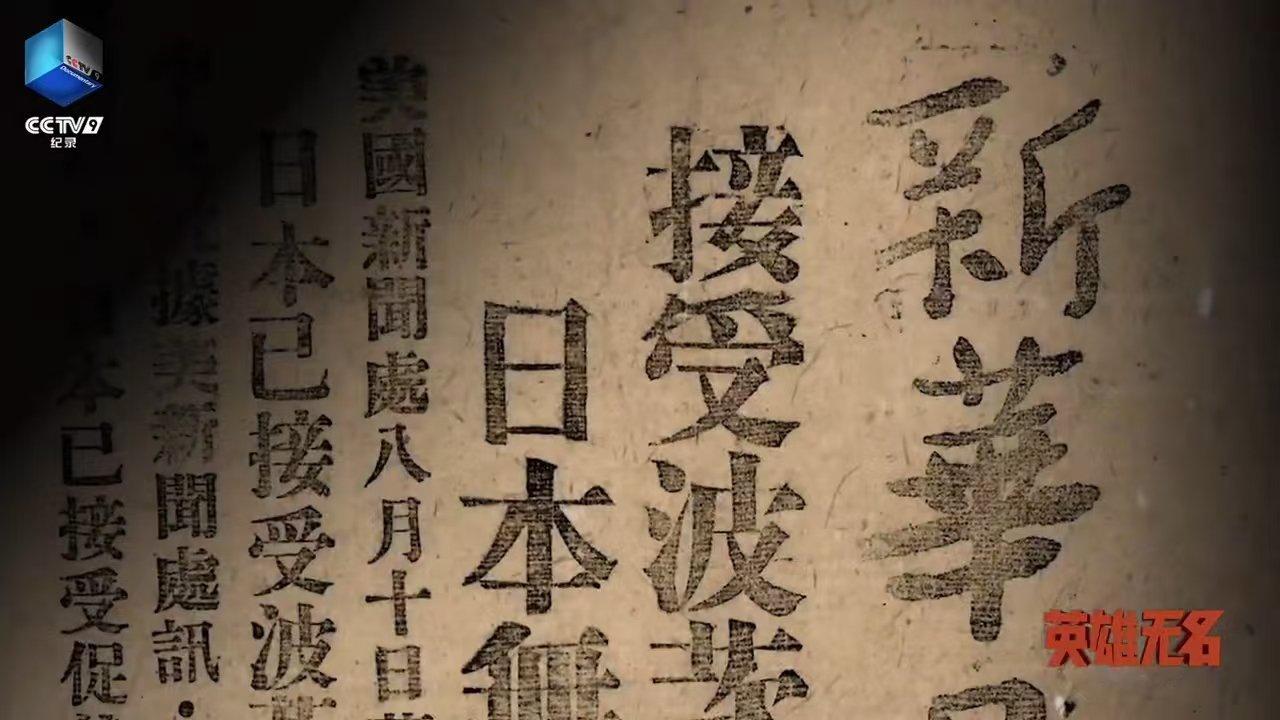 CCTV 9
Documentary
CCTV9
纪录
新華
接受波茨
日本無
美國新聞處八月十日
日本已接受波
據美新聞處訊·
日本已接受促
英雄无名